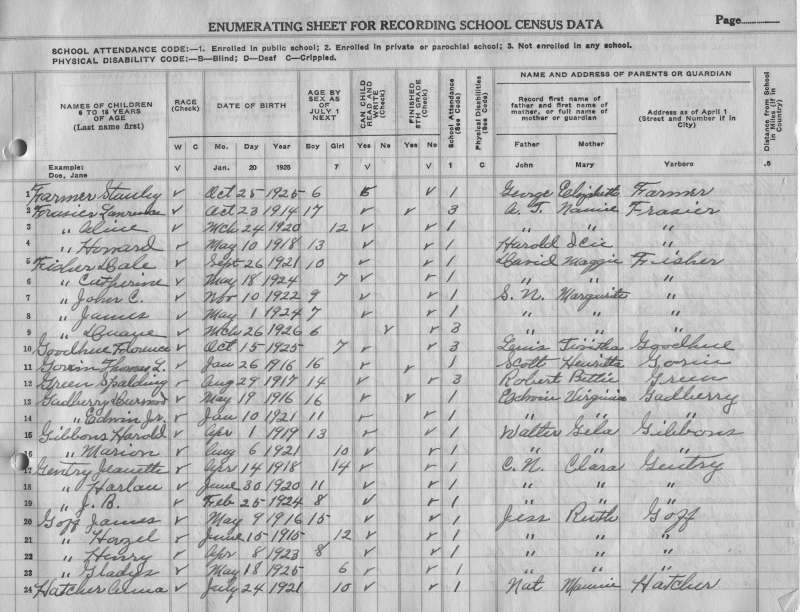 ENUMERATING SHEET FOR RECORDING SCHOOL CENSUS DATA
Page
SCHOOL ATTENDANCE CODE:—1. Enrolled in public school; 2. Enrolled in private or parochial school; 3. Not enrolled in any school.
PHYSICAL DISABILITY CODE:—B—Blind; D—Deaf C—Crippled.
NAMES OF CHILDREN 6 TO 18 YEARS OF AGE (Last name first)
RACE (Check)
DATE OF BIRTH
AGE BY SEX AS OF JULY 1 NEXT
CAN CHILD READ AND WRITE (Check)
FINISHED 8TH GRADE (Check)
School Attendance (See Code)
Physical Disabilities (See Code)
NAME AND ADDRESS OF PARENTS OR GUARDIAN
Record first name of father and first name of mother, or full name of mother or guardian
Address as of April 1 (Street and Number if in City)
Distance from School in Miles (if in Country)
W C Mo. Day Year Boy Girl Yes No Yes No Father Mother
Example: Doe, Jane V Jan. 20 1926 7 V V 1 C John Mary Yarboro .5
1 Farmer Stanley v Oct 25 1925 6 v 1 George Elizabeth Farmer
2 Frasier Lawrence v Oct 23 1914 17 v v 3 A. T. Nannie Frasier
3 " Aline v Mch 24 1920 12 v v 1 " " "
4 " Howard v May 10 1918 13 v v 1 Harold Icie "
5 Fisher Dale v Sept 26 1921 10 v v 1 David Maggie Fisher
6 " Catherine v May 18 1924 7 v v 1 " " "
7 " John C. v Nov 10 1922 9 v v 1 S. N. Margurite "
8 " James v May 1 1924 7 v v 1 " " "
9 " Duane v Mch 26 1926 6 v v 3 " " "
10 Goodhue Florence v Oct 15 1925 7 v v 1 Louis Goodhue
11 Thomas L. v Jan 26 1916 16 v v 1 Scott Henritta
12 Green Spalding v Aug 29 1917 14 v v 3 Robert Bettie Green
13 Gadberry v May 19 1916 16 v v 1 Edwin Virginia Gadberry
14 " Edwin Jr. v Jan 10 1921 11 v v 1 " " "
15 Gibbons Harold v Apr 1 1919 13 v v 1 Walter Gibbons
16 " Marion v Aug 6 1921 10 v v 1 " " "
17 Gentry Jeanette v Apr 14 1918 14 v v 1 C. N. Clara Gentry
18 " Harlan v June 30 1920 11 v v 1 " " "
19 " J. B. v Feb 25 1924 8 v v 1 " " "
20 Goff James v May 9 1916 15 v v 1 Jess Ruth Goff
21 " Hazel v June 15 12 v v 1 " " "
22 " Henry v Apr 8 1923 8 v v 1 " " "
23 " Gladys v May 18 1925 6 v v 1 " " "
24 Hatcher v July 24 1921 10 v v 1 Nat Hatcher